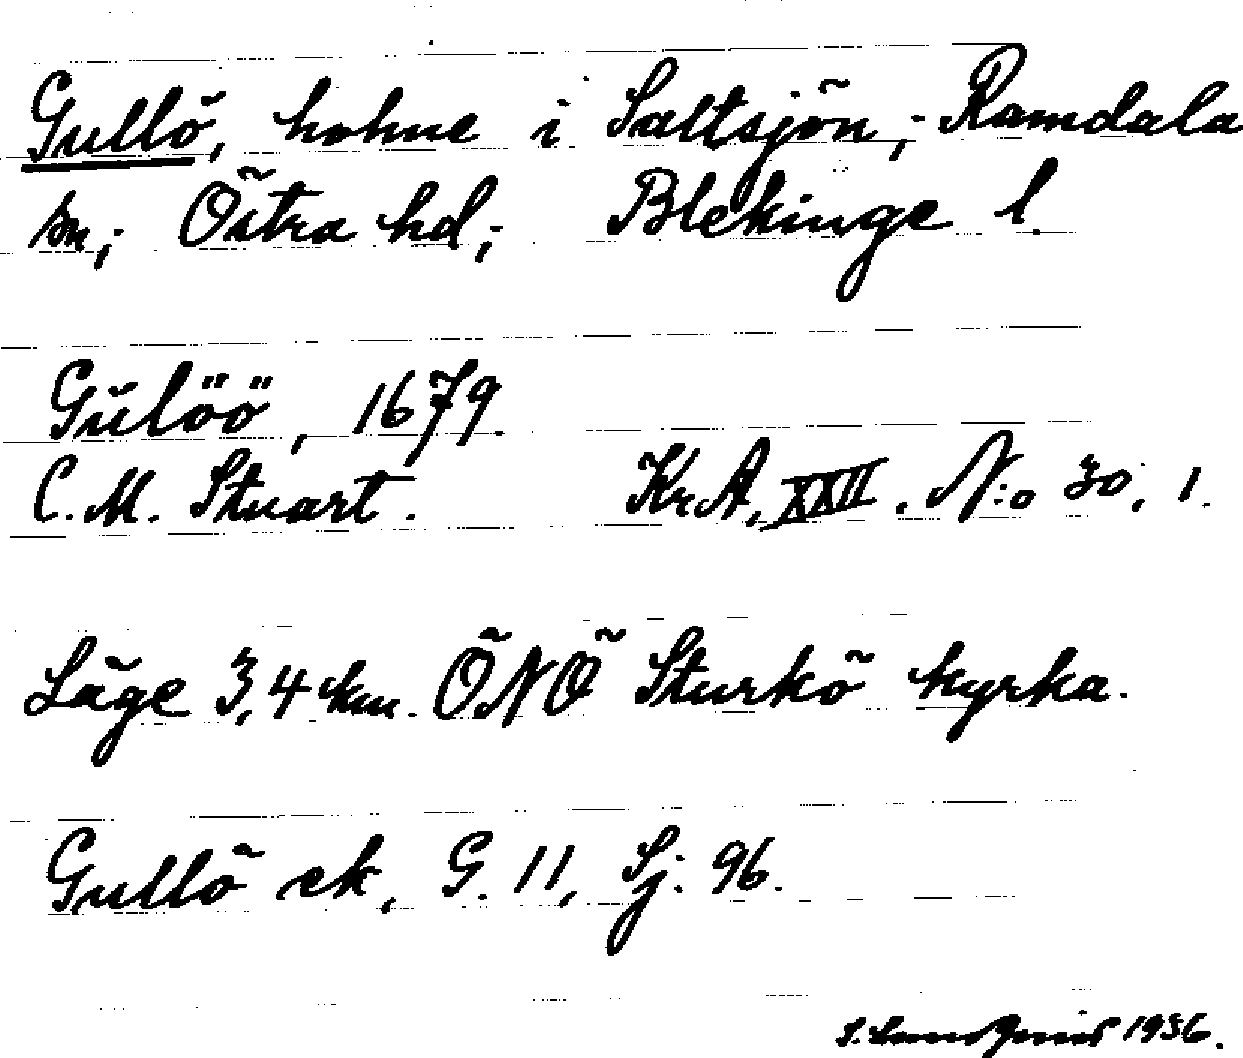 Gullö, holme i Saltsjön, Ramdala
sn; Östra hd; Blekinge l.
Gulöö, 1679.
C. M. Stuart. KrA, XXII. N:o 30, 1.
Läge 3,4 km. ÖNÖ Sturkö kyrka.
Gullö ek, G. 11, Sj. 96.
1936.